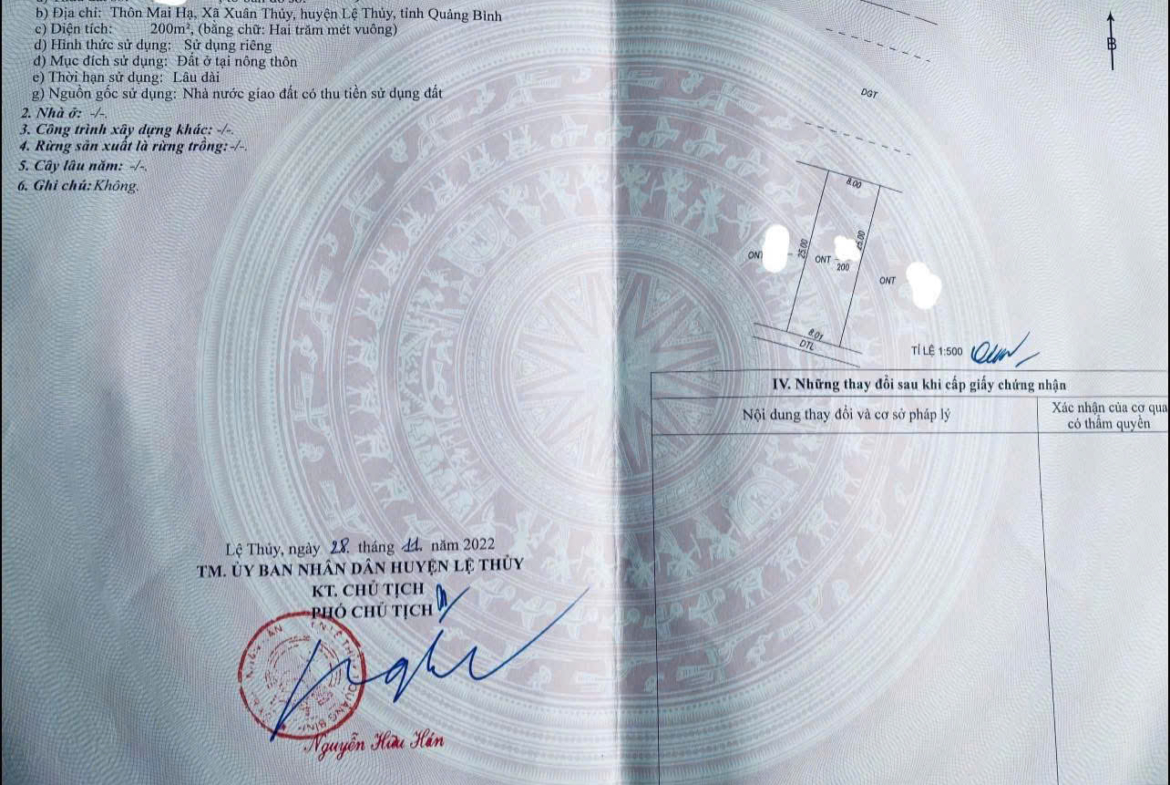 b) Địa chỉ: Thôn Mai Hạ, Xã Xuân Thủy, huyện Lệ Thủy, tỉnh Quảng Bình
c) Diện tích: 200m², (bằng chữ: Hai trăm mét vuông)
d) Hình thức sử dụng: Sử dụng riêng
đ) Mục đích sử dụng: Đất ở tại nông thôn
e) Thời hạn sử dụng: Lâu dài
g) Nguồn gốc sử dụng: Nhà nước giao đất có thu tiền sử dụng đất
2. Nhà ở: -/-.
3. Công trình xây dựng khác: -/-.
4. Rừng sản xuất là rừng trồng: -/-.
5. Cây lâu năm: -/-.
6. Ghi chú: Không.
Lệ Thủy, ngày 28 tháng 11 năm 2022
TM. ỦY BAN NHÂN DÂN HUYỆN LỆ THỦY
KT. CHỦ TỊCH
PHÓ CHỦ TỊCH
Nguyễn Hữu Hán
B
DGT
8.00
25.00
25.00
ONT
ONT
200
ONT
8.01
DTL
TỈ LỆ 1:500
IV. Những thay đổi sau khi cấp giấy chứng nhận
Nội dung thay đổi và cơ sở pháp lý
Xác nhận của cơ qua
có thẩm quyền